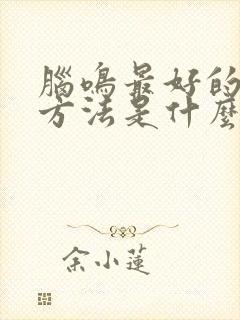 腦鳴最好的
方法是什麼
余小蓮